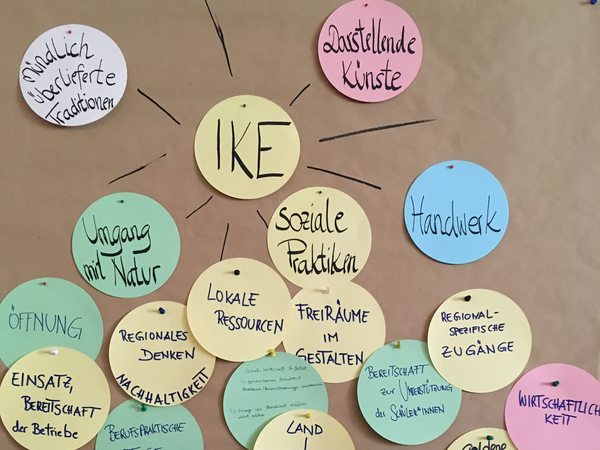 mündlich
überlieferte
Traditionen
Darstellende
Künste
IKE
Umgang
mit Natur
Soziale
Praktiken
Handwerk
ÖFFNUNG
REGIONALES
DENKEN
NACHHALTIGKEIT
LOKALE
RESSOURCEN
FREIRÄUME
IM
GESTALTEN
REGIONAL-
SPEZIFISCHE
ZUGÄNGE
EINSATZ,
BEREITSCHAFT
der Betriebe
BERUFSPRAKTISCHE
BEREITSCHAFT
zur UNTERSTÜTZUNG
der SCHÜLER*INNEN
WIRTSCHAFTLICH
KEIT
LAND
Goldene